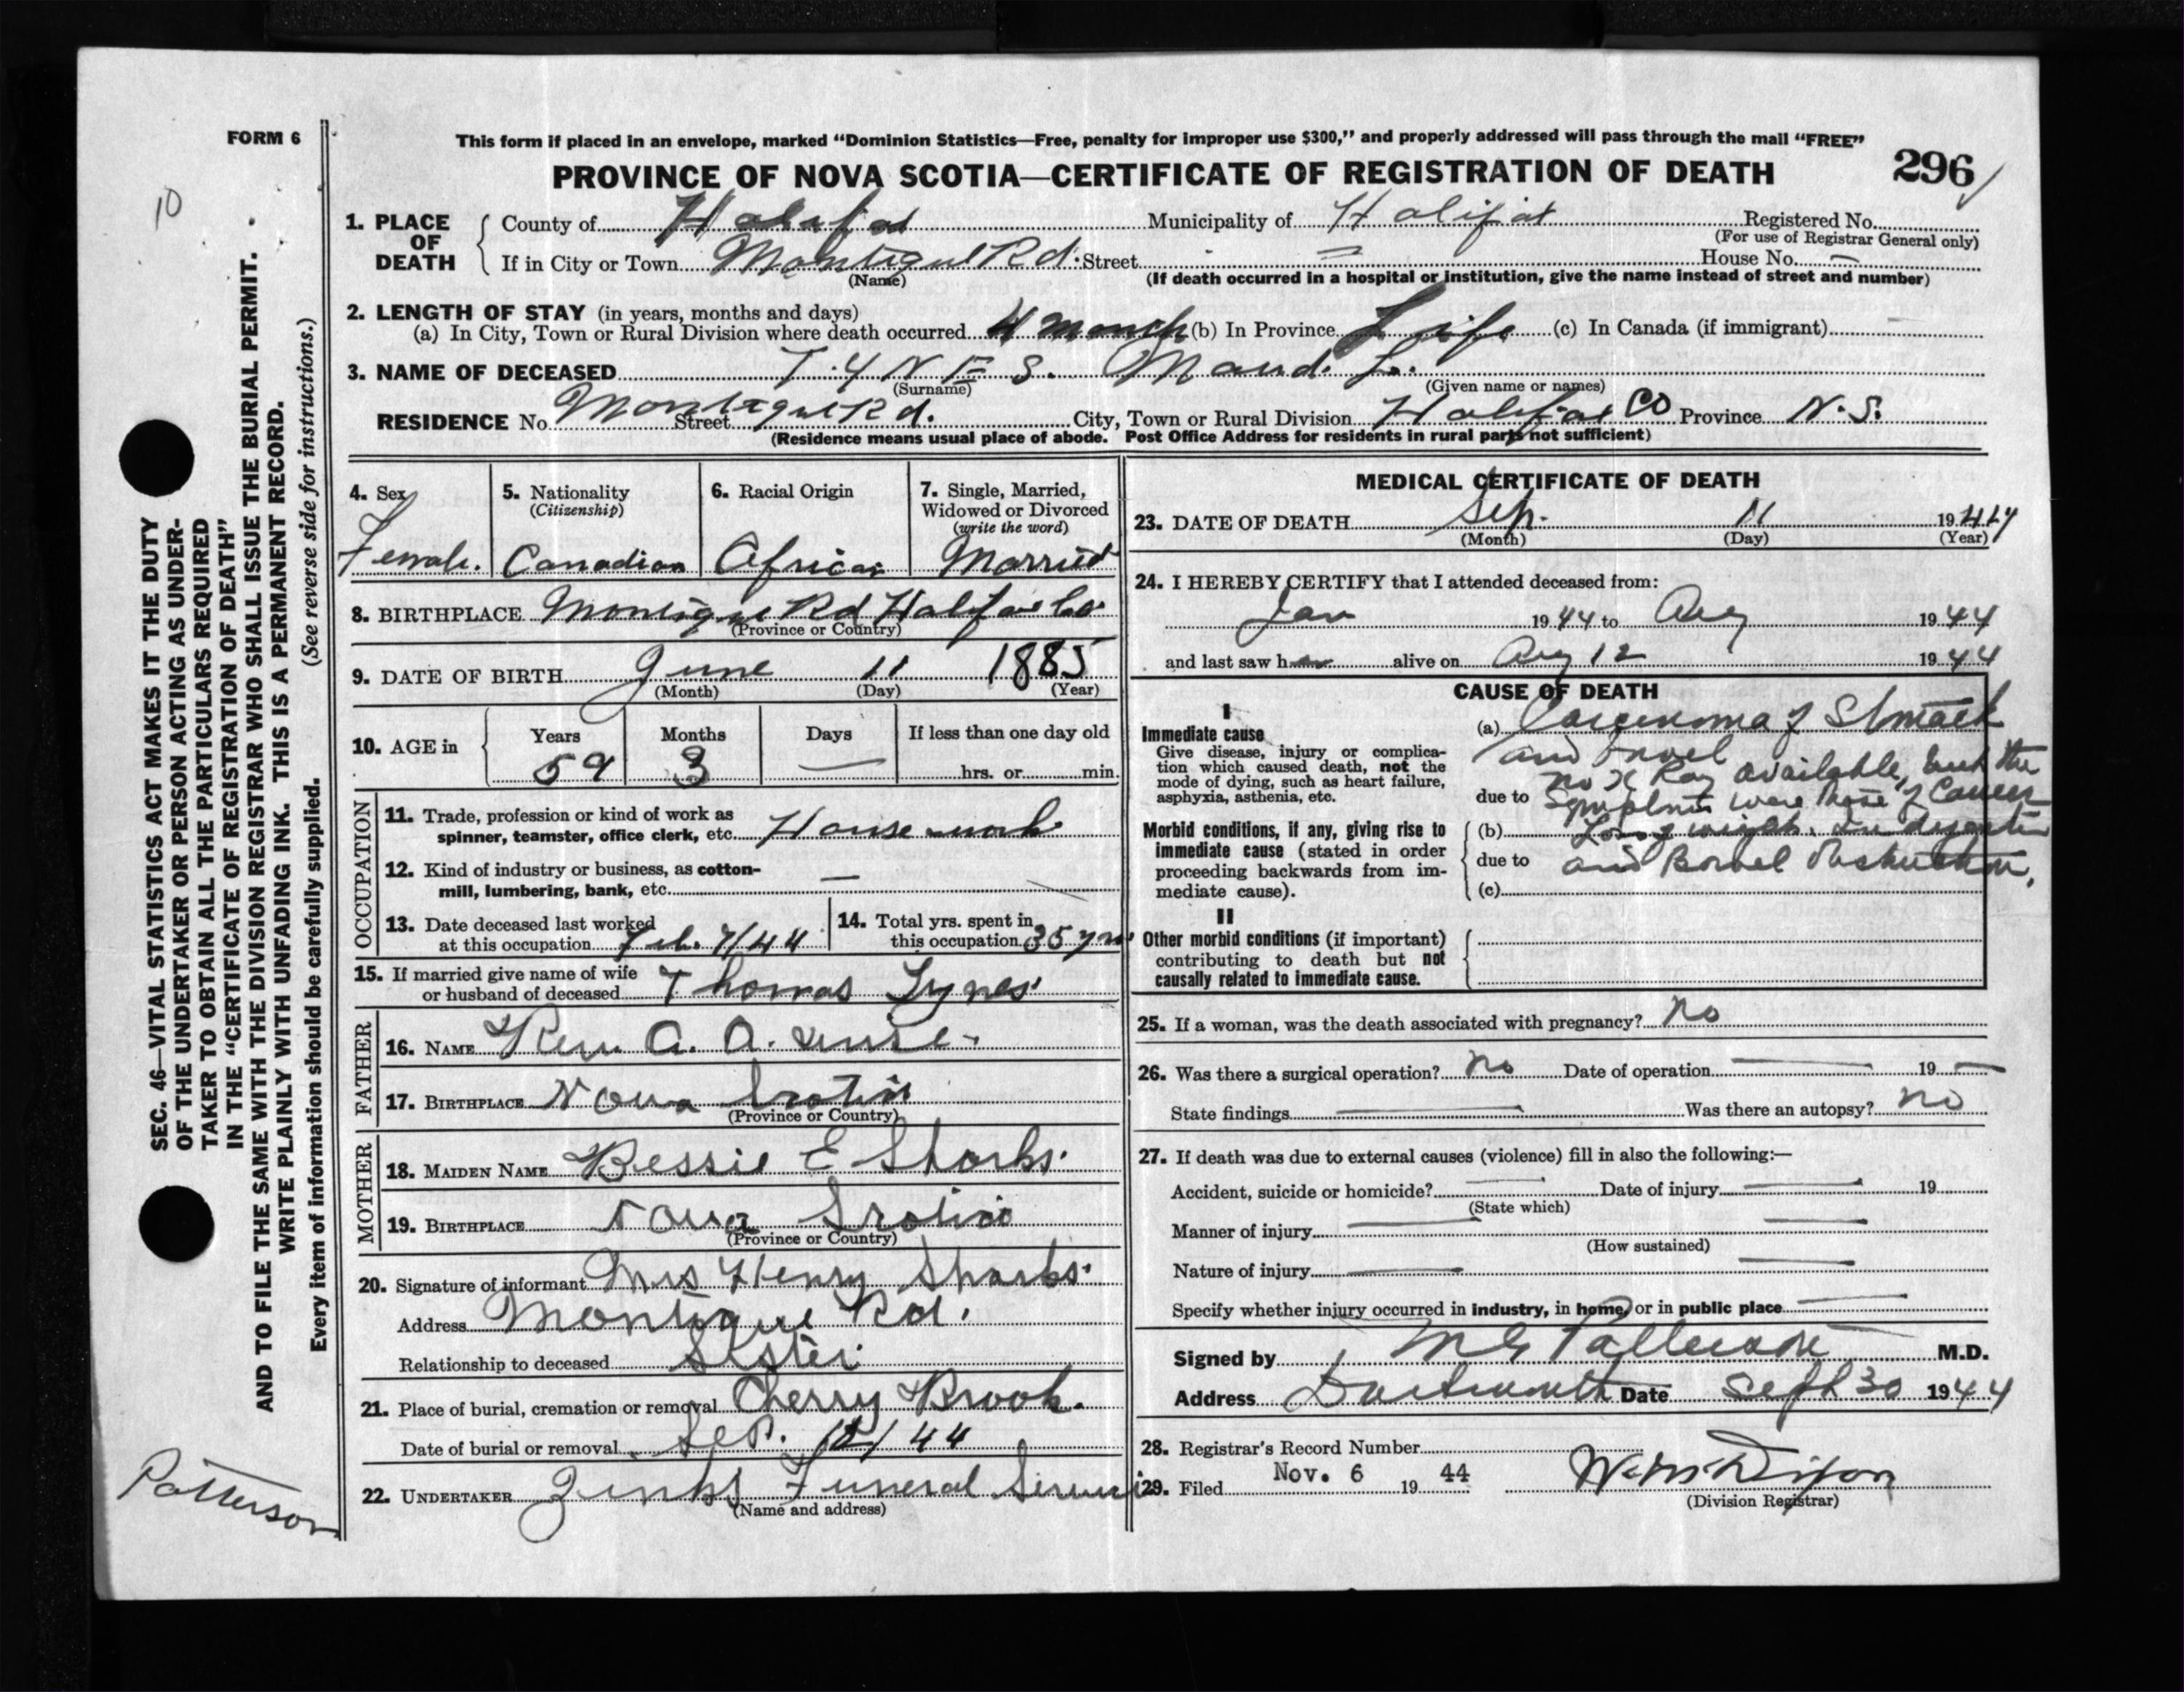 FORM 6
This form if placed in an envelope, marked “Dominion Statistics—Free, penalty for improper use $300,” and properly addressed will pass through the mail “FREE”
PROVINCE OF NOVA SCOTIA—CERTIFICATE OF REGISTRATION OF DEATH 296
10
1. PLACE OF DEATH County of Halifax Municipality of Halifax Registered No.
(For use of Registrar General only)
If in City or Town Montique Rd. Street House No. —
(Name) (If death occurred in a hospital or institution, give the name instead of street and number)
2. LENGTH OF STAY (in years, months and days)
(a) In City, Town or Rural Division where death occurred 4 month (b) In Province Life (c) In Canada (if immigrant)
3. NAME OF DECEASED TYNES. Maud. L.
(Surname) (Given name or names)
RESIDENCE No. Montique Rd. Street City, Town or Rural Division Halifax Co Province N.S.
(Residence means usual place of abode. Post Office Address for residents in rural parts not sufficient)
SEC. 46—VITAL STATISTICS ACT MAKES IT THE DUTY
OF THE UNDERTAKER OR PERSON ACTING AS UNDER-
TAKER TO OBTAIN ALL THE PARTICULARS REQUIRED
IN THE “CERTIFICATE OF REGISTRATION OF DEATH”
AND TO FILE THE SAME WITH THE DIVISION REGISTRAR WHO SHALL ISSUE THE BURIAL PERMIT.
WRITE PLAINLY WITH UNFADING INK. THIS IS A PERMANENT RECORD.
Every item of information should be carefully supplied. (See reverse side for instructions.)
4. Sex Female.
5. Nationality (Citizenship) Canadian
6. Racial Origin African
7. Single, Married, Widowed or Divorced (write the word) Married
8. BIRTHPLACE Montique Rd Halifax Co
(Province or Country)
9. DATE OF BIRTH June 11 1885
(Month) (Day) (Year)
10. AGE in Years Months Days If less than one day old
59 3 — hrs. or min.
OCCUPATION
11. Trade, profession or kind of work as
spinner, teamster, office clerk, etc. House work
12. Kind of industry or business, as cotton-
mill, lumbering, bank, etc. —
13. Date deceased last worked
at this occupation Feb. 7/44
14. Total yrs. spent in
this occupation 35 yrs
15. If married give name of wife
or husband of deceased Thomas Tynes
FATHER
16. NAME Rev. A. A. Wise
17. BIRTHPLACE Nova Scotia
(Province or Country)
MOTHER
18. MAIDEN NAME Bessie E Sparks
19. BIRTHPLACE Nova Scotia
(Province or Country)
20. Signature of informant Mrs Henry Sparks
Address Montique Rd.
Relationship to deceased Sister
21. Place of burial, cremation or removal Cherry Brook.
Date of burial or removal Sep. /44
22. UNDERTAKER Zinks Funeral Service
(Name and address)
Patterson
MEDICAL CERTIFICATE OF DEATH
23. DATE OF DEATH Sep. 11 1944
(Month) (Day) (Year)
24. I HEREBY CERTIFY that I attended deceased from:
Jan 1944 to Aug 1944
and last saw her alive on Aug 12 1944
CAUSE OF DEATH
I
Immediate cause
Give disease, injury or complica-
tion which caused death, not the
mode of dying, such as heart failure,
asphyxia, asthenia, etc.
(a) Carcinoma of Stomach
and Bowel
no X Ray available, but the
due to Symptoms were those of Cancer
Morbid conditions, if any, giving rise to
immediate cause (stated in order
proceeding backwards from im-
mediate cause).
(b) Loss of weight. Indigestion
due to and Bowel Obstruction,
(c)
II
Other morbid conditions (if important)
contributing to death but not
causally related to immediate cause.
25. If a woman, was the death associated with pregnancy? No
26. Was there a surgical operation? No Date of operation — 19 —
State findings — Was there an autopsy? no
27. If death was due to external causes (violence) fill in also the following:—
Accident, suicide or homicide? — Date of injury — 19
(State which)
Manner of injury —
(How sustained)
Nature of injury —
Specify whether injury occurred in industry, in home, or in public place —
Signed by M G Patterson M.D.
Address Dartmouth Date Sept 30 1944
28. Registrar's Record Number
29. Filed Nov. 6 19 44
(Division Registrar)